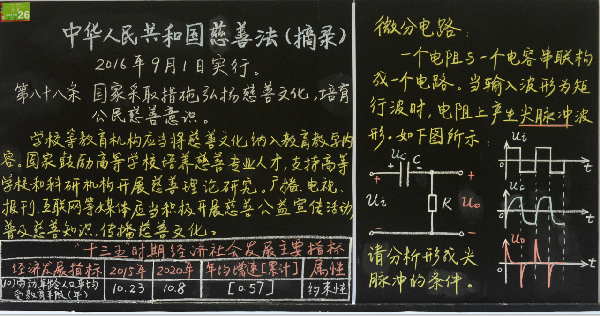 26
中华人民共和国慈善法(摘录)
2016年9月1日实行。
第八十八条 国家采取措施,弘扬慈善文化,培育
公民慈善意识。
学校等教育机构应当将慈善文化纳入教育教学内
容。国家鼓励高等学校培养慈善专业人才,支持高等
学校和科研机构开展慈善理论研究。广播、电视、
报刊、互联网等媒体应当积极开展慈善公益宣传活动
普及慈善知识,传播慈善文化。
"十三五"时期经济社会发展主要指标
经济发展指标 2015年 2020年 年均增速[累计] 属性
(10)劳动年龄人口平均
受教育年限(年) 10.23 10.8 [0.57] 约束性
微分电路:
一个电阻与一个电容串联构
成一个电路。当输入波形为矩
行波时,电阻上产生尖脉冲波
形。如下图所示:
Uc C
+ +
Ui R Uo
- -
Ui t
Uc t
Uo t
请分析形成尖
脉冲的条件。